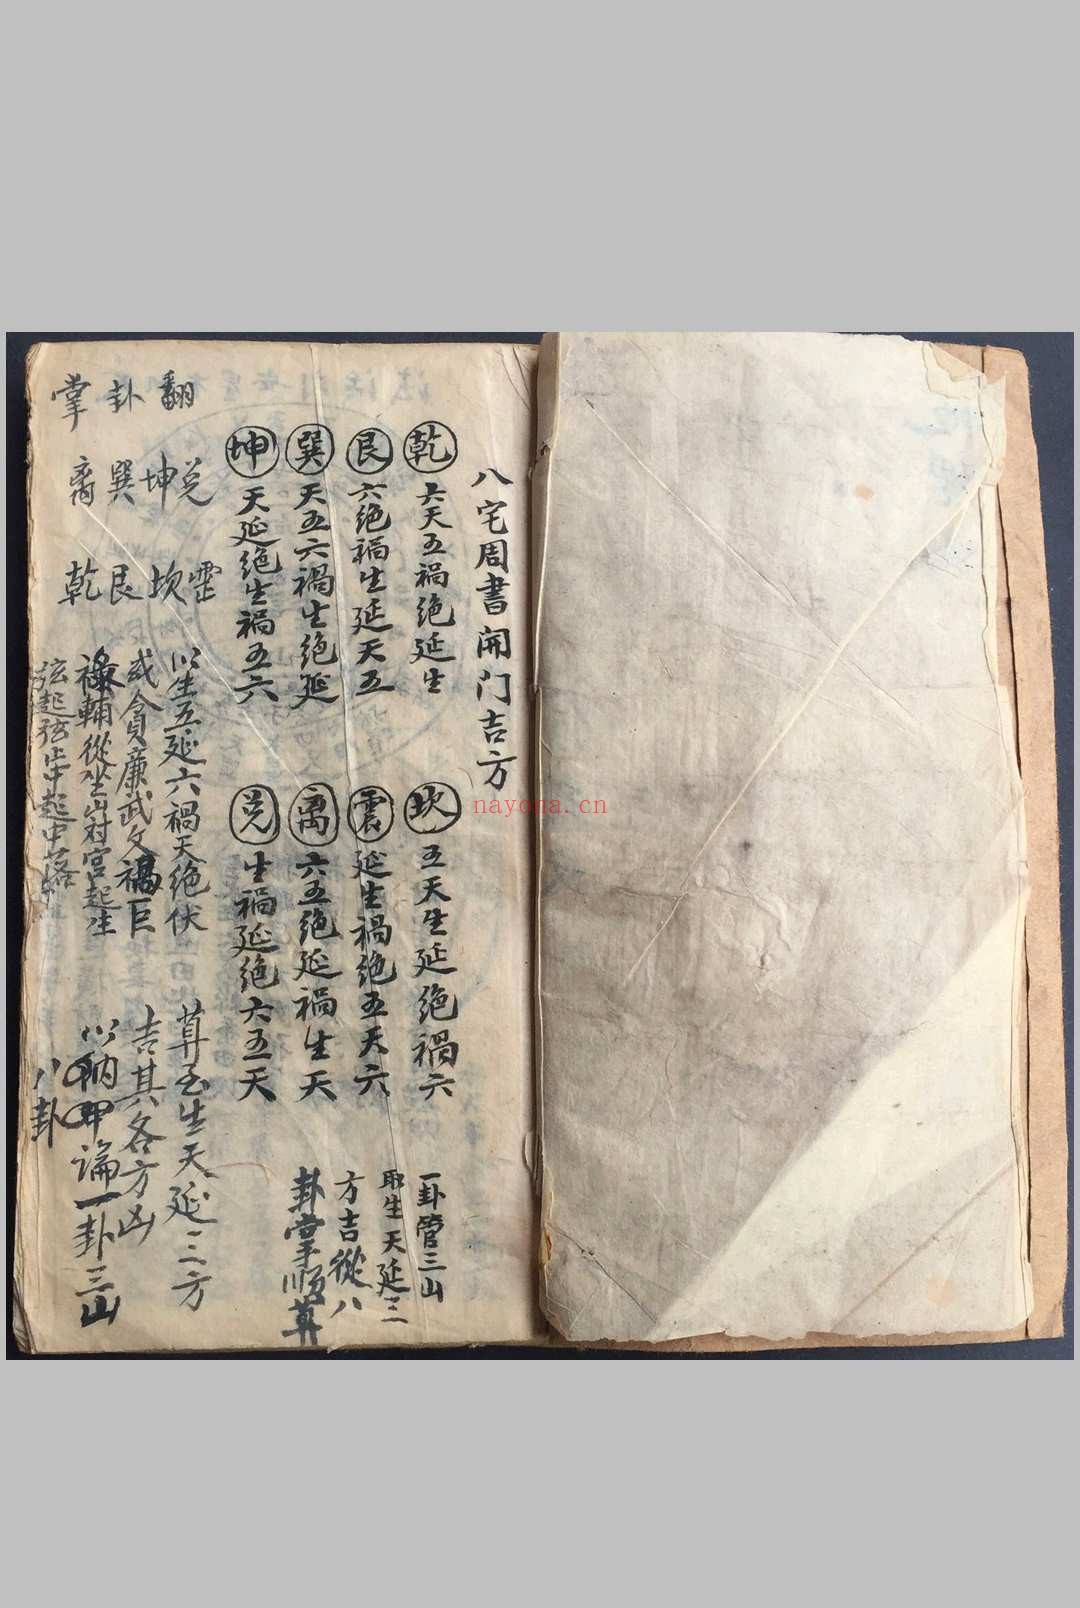 八宅周書開门吉方
乾 六天五禍绝延生
坎 五天生延绝禍六
艮 六绝禍生延天五
震 延生禍绝五天六
巽 天五六禍生绝延
离 六五绝延禍生天
坤 天延绝生禍五六
兑 生禍延绝六五天
一卦管三山
取生天延三
方吉從八
卦掌順算
翻卦掌
兑坤巽离
坎艮乾
以生五延六禍天绝伏
或貪廉武文禄巨
禄輔從坐山对宫起生
弦起弦止中起中落
算至生天延三方
吉其各方凶
以纳甲論一卦三山
八卦
nayona.cn